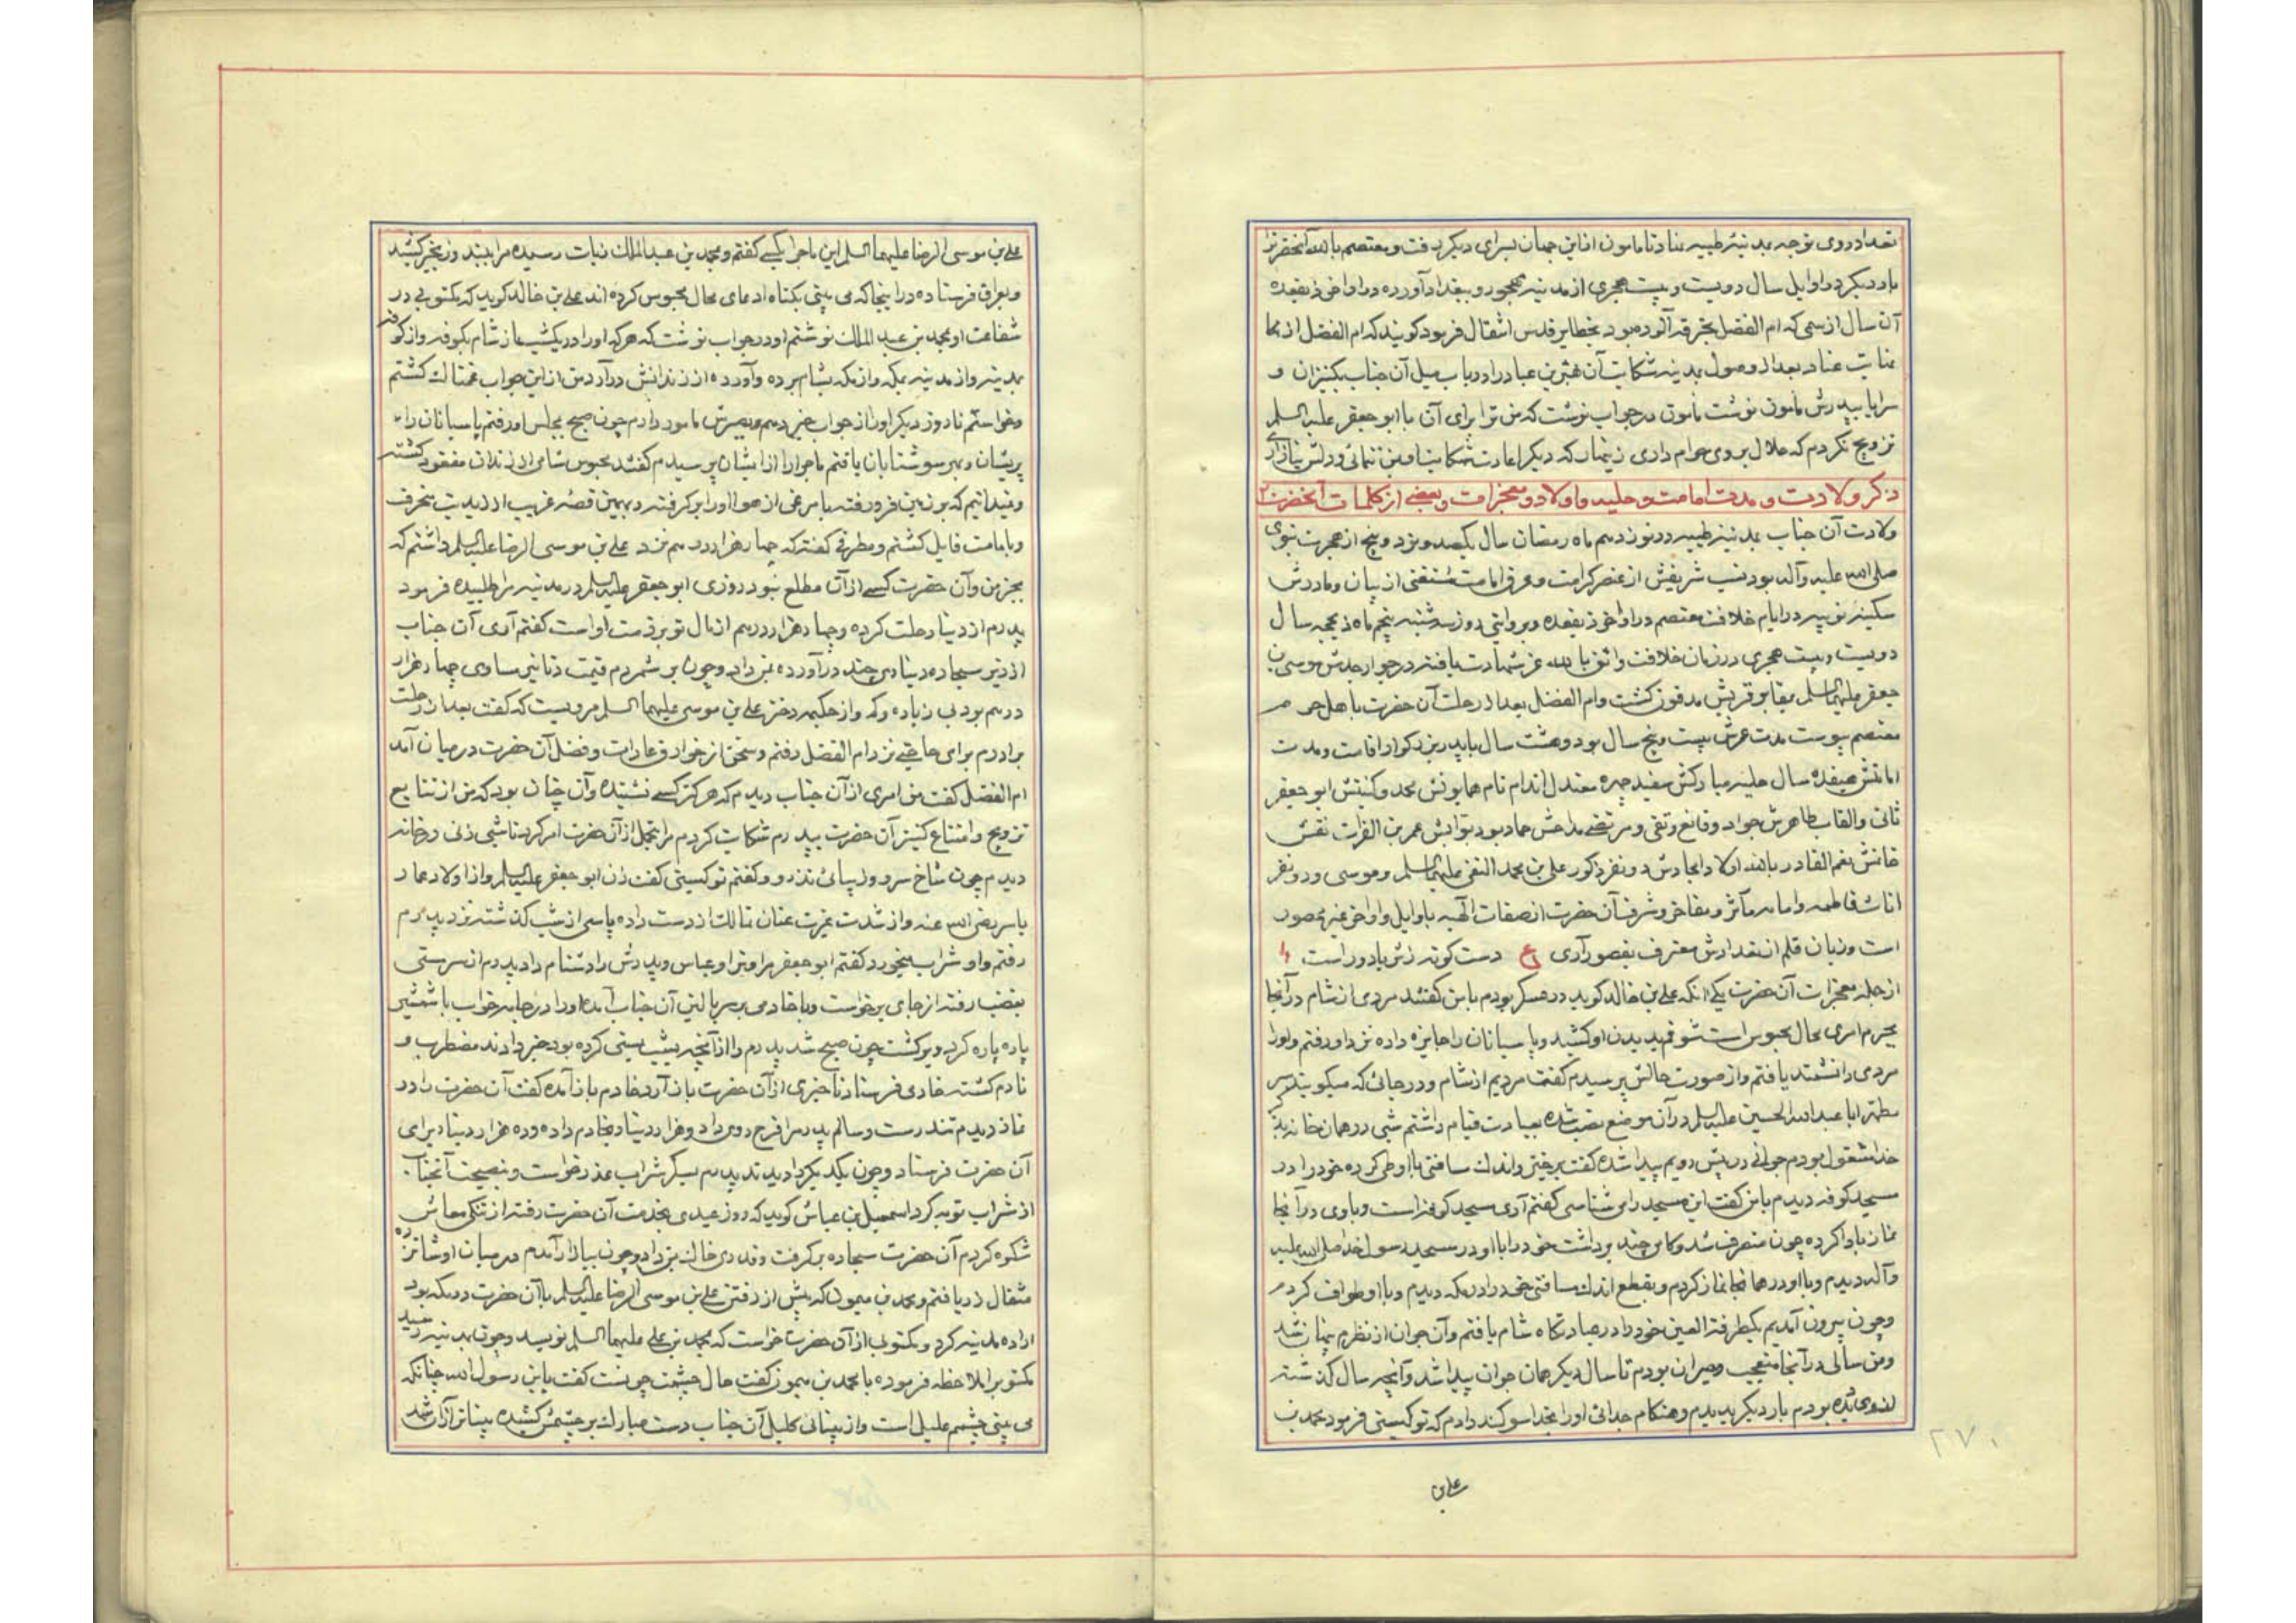 بغداد روی توجه بمدینهٔ طیبه نهاد تا مامون ازین جهان بسرای دیگر رفت و معتصم بالله آنحضرترا
بار دیگر در اوایل سال دویست و بیست هجری از مدینه مهجور و ببغداد آورده در اواخر ذیقعده
آن سال از سمی که ام الفضل بخرقه آلوده بود بخطایر قدس انتقال فرمود گویند که ام الفضل از
عنایت عناد بعد از وصول مدینه شکایت آن مهترین عباد را در باب میل آن جناب بکنیزان و
سرایا بپدرش مأمون نوشت مأمون در جواب نوشت که من ترا برای آن با ابو جعفر علیه السلم
تزویج نکردم که حلال بر وی حرام داری زینهار که دیگر اعادت شکایت او بمن ننمائی و دلش نیازاری
ذکر ولادت و مدت امامت و حلیه و اولاد و معجزات و بعضی از کلمات آنحضرت
ولادت آن جناب بمدینهٔ طیبه در نوزدهم ماه رمضان سال یکصد و نود و پنج از هجرت نبوی
صلی الله علیه و آله بود نسب شریفش از عنصر کرامت و عرق امامت مستغنی از بیان و مادرش
سکینهٔ نوبیه در ایام خلافت معتصم در اواخر ذیقعده و بروایتی روز سه شنبه پنجم ماه ذیحجه سال
دویست و بیست هجری در زمان خلافت واثق بالله عز شهادت یافته در جوار جدش موسی بن
جعفر علیهما السلم بمقابر قریش مدفون گشت و ام الفضل بعد از رحلت آن حضرت باهل حرم
معتصم پیوست مدت عمرش بیست و پنج سال بود و هشت سال با پدر بزرگوار اقامت و مدت
امامتش هیفده سال حلیهٔ مبارکش سفید چهره معتدل اندام نام همایونش محمد و کنیتش ابو جعفر
ثانی و القاب طاهرش جواد و قانع و تقی و مرتضی مداحش حماد بود بوابش عمر بن الفرات نقش
خاتمش نعم القادر بالله اولاد امجادش دو نفر ذکور علی بن محمد النقی علیهما السلم و موسی و دو نفر
اناث فاطمه و امامه مآثر و مفاخر و شرف آن حضرت از صفات الهیه باوایل و اواخر غیر محصور
است و زبان قلم از تعدادش معترف بقصور آری ع دست کوته زشاخ دور است
از جمله معجزات آن حضرت یکی آنکه علی بن خالد گوید در عسکر بودم با من گفتند مردی از شام در آنجا
بجرم امری محال محبوس است شوقم بدیدن او کشید و پاسبانان را جایزه داده نزد او رفتم و او را
مردی دانشمند یافتم و از صورت حالش پرسیدم گفت مردیم از شام و در جائی که میگویند سر
مطهر ابا عبدالله الحسین علیه السلم در آن موضع نصب شده بعبادت قیام داشتم شبی در همان خانه بذکر
خدا مشغول بودم جوانی در پیش رویم پیدا شده گفت برخیز و اندک مسافتی با او طی کرده خود را در
مسجد کوفه دیدم با من گفت این مسجد را می شناسی گفتم آری مسجد کوفه است و با وی در آنجا
نماز بادا کرده چون منصرف شد و گامی چند برداشت خود را با او در مسجد رسول خدا صلی الله علیه
و آله دیدم و با او در همانجا نماز کردم و بقطع اندک مسافتی خود را در مکه دیدم و با او طواف کردم
و چون بیرون آمدیم بیک طرفة العین خود را در عبادتگاه شام یافتم و آن جوان از نظرم پنهان شد
و من سالی در آنجا متعجب و حیران بودم تا سال دیگر همان جوان پیدا شد و آنچه سال گذشته
از وی دیده بودم بار دیگر بدیدم و هنگام جدائی او را بخدا سوگند دادم که تو کیستی فرمود محمد بن
علی بن
۲۷۰
علی بن موسی الرضا علیهما السلم این ماجرا بکسی گفتم و بمحمد بن عبدالملک زیات رسیده مرا ببند و زنجیر کشید
و بعراق فرستاده در اینجا که می بینی بیگناه ادعای محال محبوس کرده اند علی بن خالد گوید که مکتوبی در
شفاعت او بمحمد بن عبد الملک نوشتم او در جواب نوشت که هر که او را در یکشب از شام بکوفه و از کوفه
بمدینه و از مدینه بمکه و از مکه بشام برده و آورده از زندانش در آرد من ازین جواب غمناک گشتم
و خواستم تا روز دیگر او را از جواب خبر دهم و بصبرش مامور دارم چون صبح بمجلس او رفتم پاسبانان را
پریشان و بهر سو شتابان یافتم ماجرا را از ایشان پرسیدم گفتند محبوس شامی از زندان مفقود گشته
و نمیدانیم که بزمین فرو رفته یا مرغی از هوا او را بر گرفته و بهمین قصه غریب از زیدیت منحرف
و بامامت قایل گشتم و مطرفی گفته که چهار هزار درهم نزد علی بن موسی الرضا علیه السلم داشتم که
بجز من و آن حضرت کسی از آن مطلع نبود روزی ابو جعفر علیه السلم در مدینه مرا طلبیده فرمود
پدرم از دنیا رحلت کرده و چهار هزار درهم از مال تو بر ذمت او است گفتم آری آن جناب
از زیر سجاده دیناری چند در آورده بمن داد و چون بر شمردم قیمت دنانیر مساوی چهار هزار
درهم بود بی زیاده و کم و از حکیمه دختر علی بن موسی علیهما السلم مرویست که گفت بعد از رحلت
برادرم برای حاجتی نزد ام الفضل رفتم و سخن از خوارق عادات و فضل آن حضرت در میان آمد
ام الفضل گفت من امری از آن جناب دیدم که هرگز کسی نشنیده و آن چنان بود که من از تتابع
تزویج و امتناع کنیز آن حضرت بپدرم شکایت کردم مرا بتحمل از آن حضرت امر کرد تا شبی زنی در خانه
دیدم چون شاخ سرو و زیبائی تذرو و گفتم تو کیستی گفت زن ابو جعفر علیه السلم و از اولاد عمار
یاسر رضی الله عنه و از شدت غیرت عنان تمالک از دست داده پاسی از شب گذشته نزد پدرم
رفتم و او شراب میخورد گفتم ابو جعفر مرا و ترا و عباس و پدرش را دشنام داد پدرم از سر مستی
بغضب رفته از جای برخواست و با خادمی بر سر بالین آن جناب آمده او را در جامه خواب با شمشیر
پاره پاره کرد و برگشت چون صبح شد پدرم را از آنچه بشب مستی کرده بود خبر دادند مضطرب و
نادم گشته خادمی فرستاد تا خبری از آن حضرت باز آرد خادم باز آمده گفت آن حضرت را در
نماز دیدم تندرست و سالم پدرم را فرح روی داد و هزار دینار بخادم داده و ده هزار دینار برای
آن حضرت فرستاد و چون یکدیگر را دیدند پدرم بسکر شراب عذر خواست و بنصیحت آنجناب
از شراب توبه کرد اسمعیل بن عباس گوید که روز عیدی بخدمت آن حضرت رفته از تنگی معاش
شکوه کردم آن حضرت سجاده بر گرفت و قدری خاک بمن داد و چون ببازار آمدم در میان او شانزده
مثقال زر یافتم و محمد بن میمون که پیش از رفتن علی بن موسی الرضا علیه السلم با آن حضرت در مکه بود
اراده مدینه کرد و مکتوبی از آن حضرت خواست که بمحمد بن علی علیهما السلم نویسد و چون بمدینه رسید
مکتوب را ملاحظه فرموده با محمد بن میمون گفت حال چشمت چونست گفت یابن رسول الله چنانکه
می بینی چشمم علیل است و از بینائی کلیل آن جناب دست مبارک بر چشمش کشیده بینا تر از آن شد